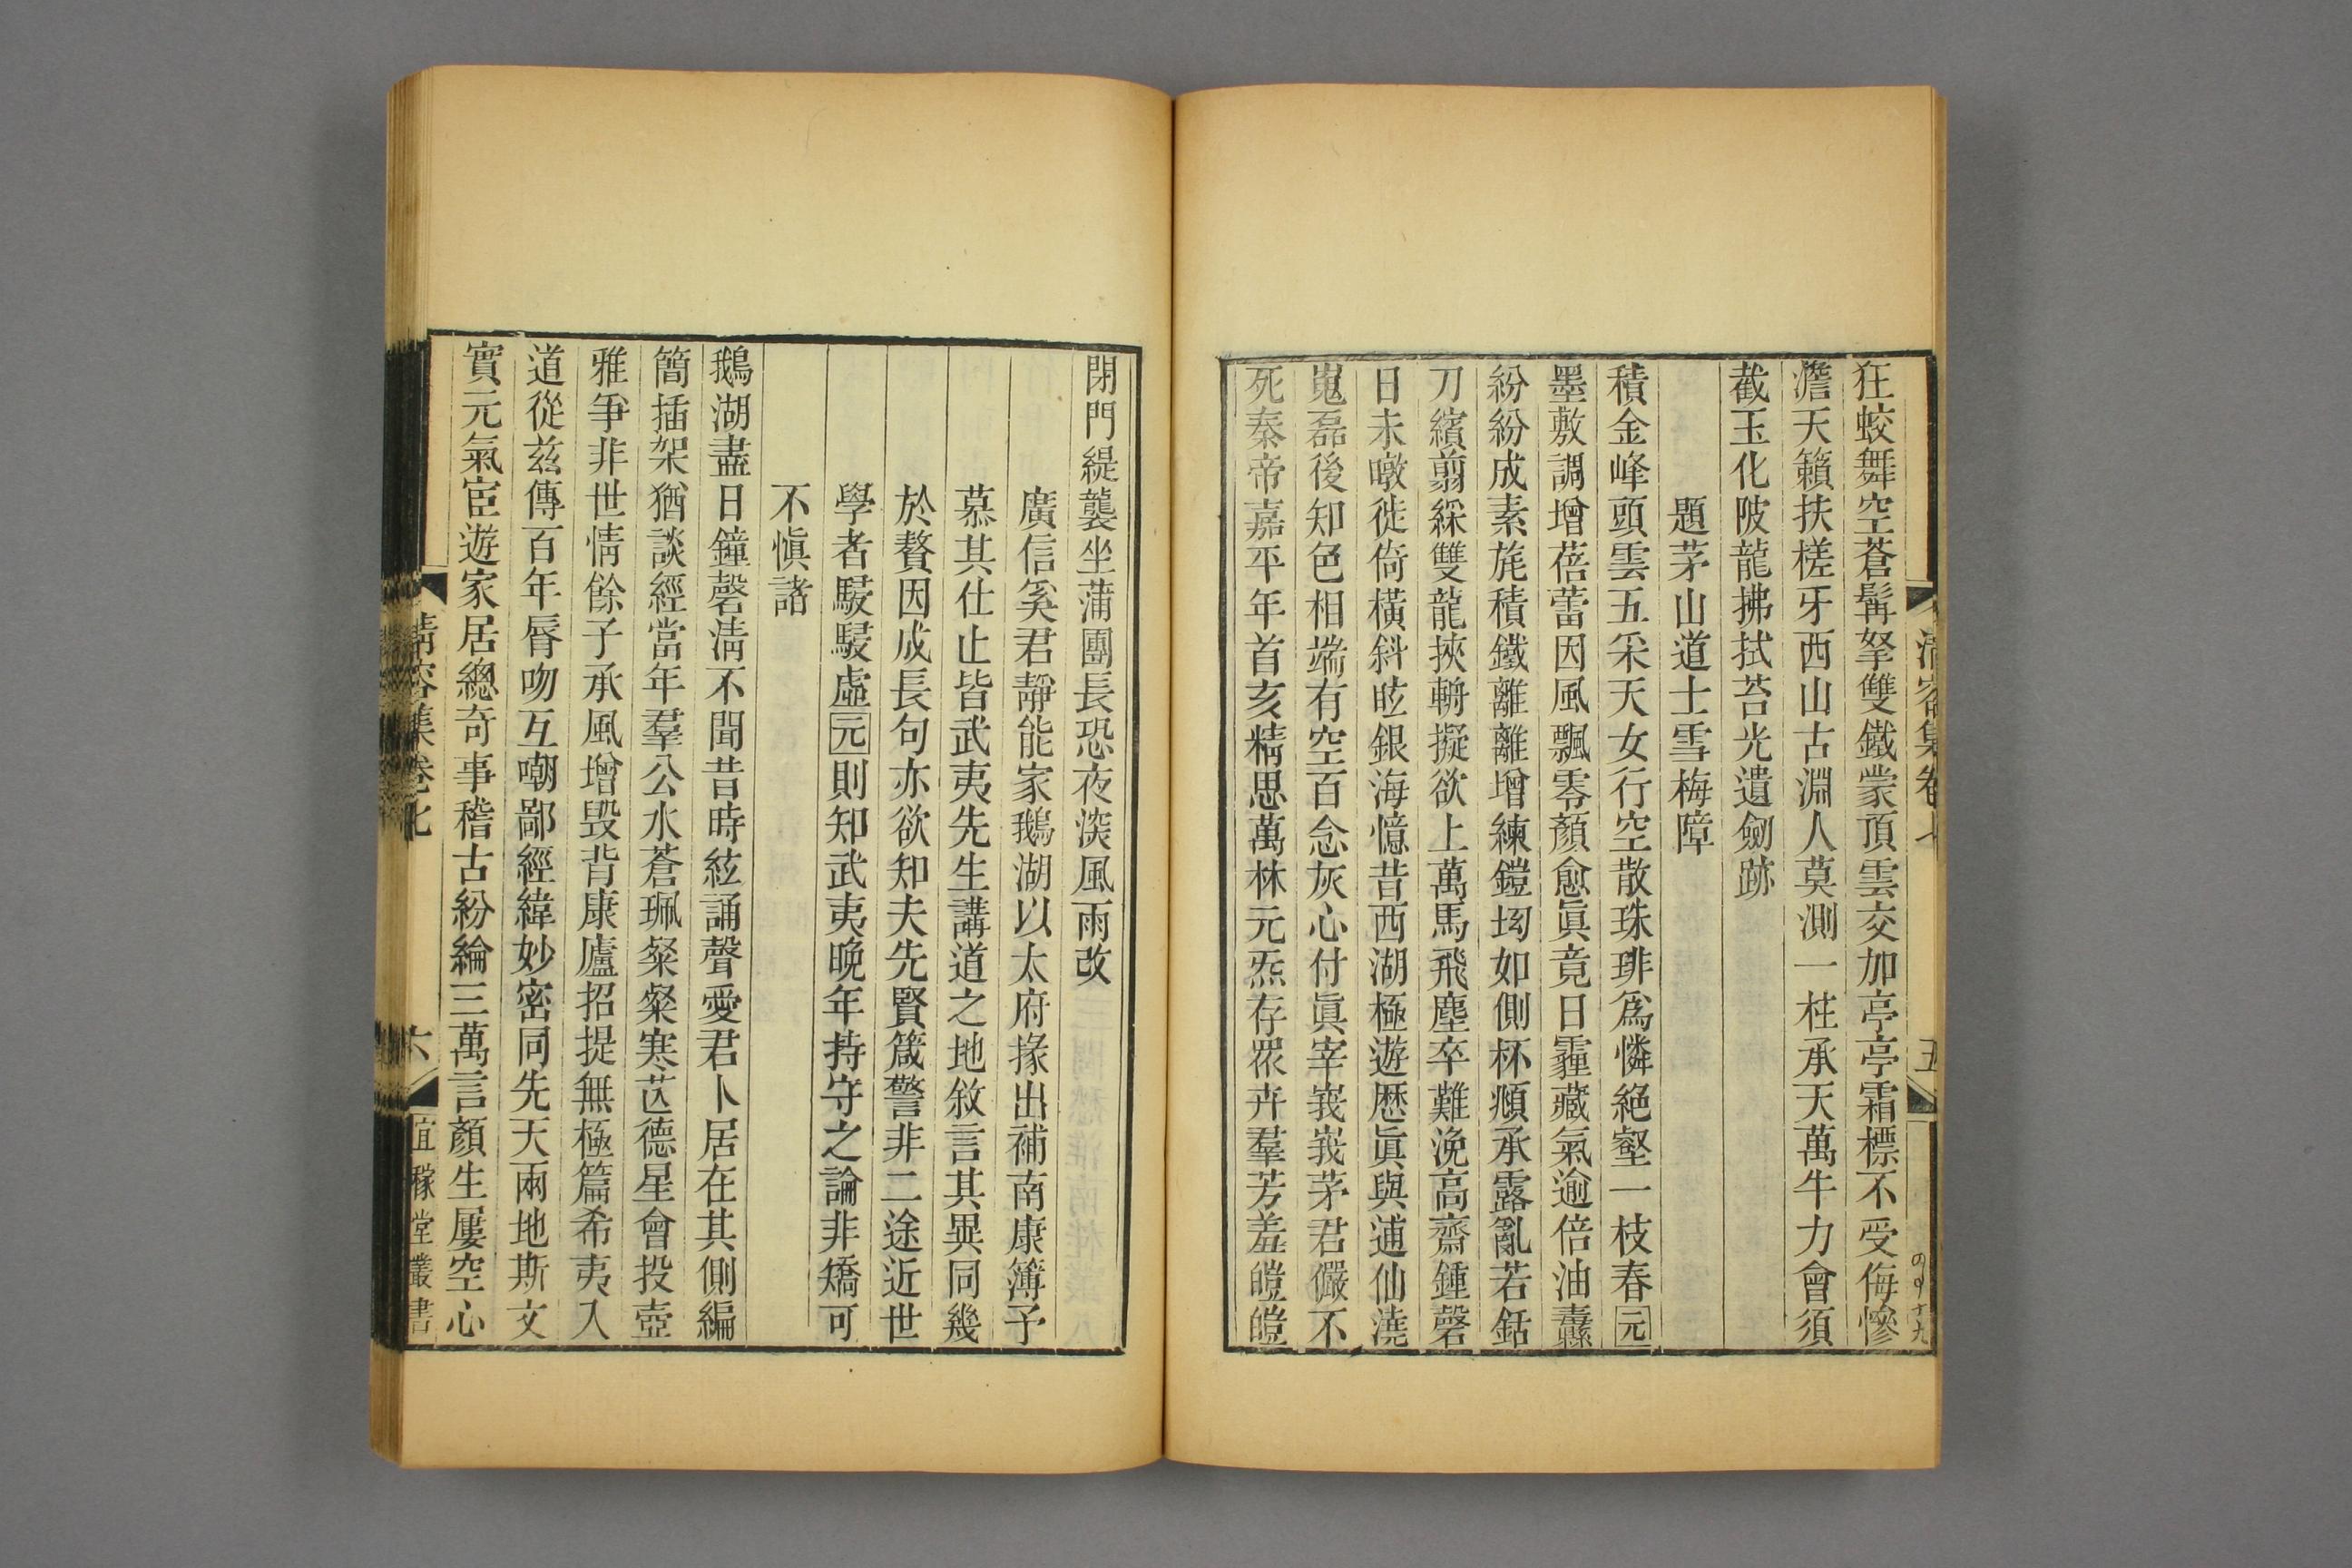 清容集卷七
五
狂蛟舞空蒼髯拏雙鐵蒙頂雲交加亭亭霜標不受侮慘
澹天籟扶槎牙西山古淵人莫測一柱承天萬牛力會須
截玉化陂龍拂拭苔光遺劍跡
題茅山道士雪梅障
積金峰頭雲五采天女行空散珠琲爲憐絕壑一枝春元
墨敷調增蓓蕾因風飄零顏愈眞竟日霾藏氣逾倍油纛
紛紛成素旄積鐵離離增練鎧㘭如側杯頫承露亂若銛
刀繽翦綵雙龍挾輈擬欲上萬馬飛塵卒難浼高齋鍾磬
日未暾徙倚橫斜眩銀海憶昔西湖極遊歷眞與逋仙澆
嵬磊後知色相端有空百念灰心付眞宰峩峩茅君儼不
死秦帝嘉平年首亥精思萬林元炁存眾卉羣芳羞皚皚
閉門緹襲坐蒲團長恐夜深風雨改
廣信奚君靜能家鵝湖以太府掾出補南康簿予
慕其仕止皆武夷先生講道之地敘言其異同幾
於贅因成長句亦欲知夫先賢箴警非二途近世
學者駸駸虛元則知武夷晚年持守之論非矯可
不愼諸
鵝湖盡日鐘磬淸不聞昔時絃誦聲愛君卜居在其側編
簡插架猶談經當年羣公水蒼珮粲粲寒芒德星會投壺
雅爭非世情餘子承風增毀背康廬招提無極篇希夷入
道從兹傳百年脣吻互嘲鄙經緯妙密同先天兩地斯文
實元氣宦遊家居總奇事稽古紛綸三萬言顏生屢空心
清容集卷七
六
宜稼堂叢書